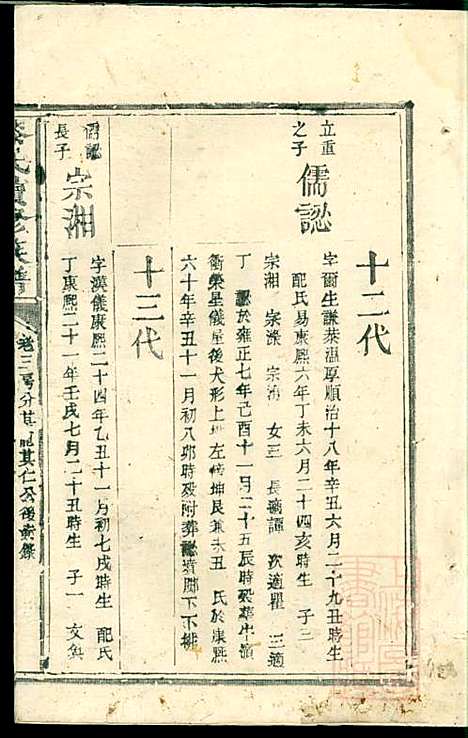 十二代
立重之子
儒認
字爾生謙恭溫厚順治十八年辛丑六月二十九丑時生
配氏易康熙六年丁未六月二十四亥時生 子三
宗湘 宗滌 宗海 女三 長適譚 次適瞿 三適
丁 認於雍正七年己酉十一月二十五辰時歿葬牛滴
衝榮星儀屋後犬形上地左傍坤艮兼未丑 氏於康熙
六十年辛丑十一月初八卯時歿附葬認墳腳下下排
十三代
儒認長子
宗湘
字漢儀康熙二十四年乙丑十一月初七戌時生 配氏
丁康熙二十一年壬戌七月二十五丑時生 子一 女奐
氏續修族譜
卷三房分其 其仁公後裔傑